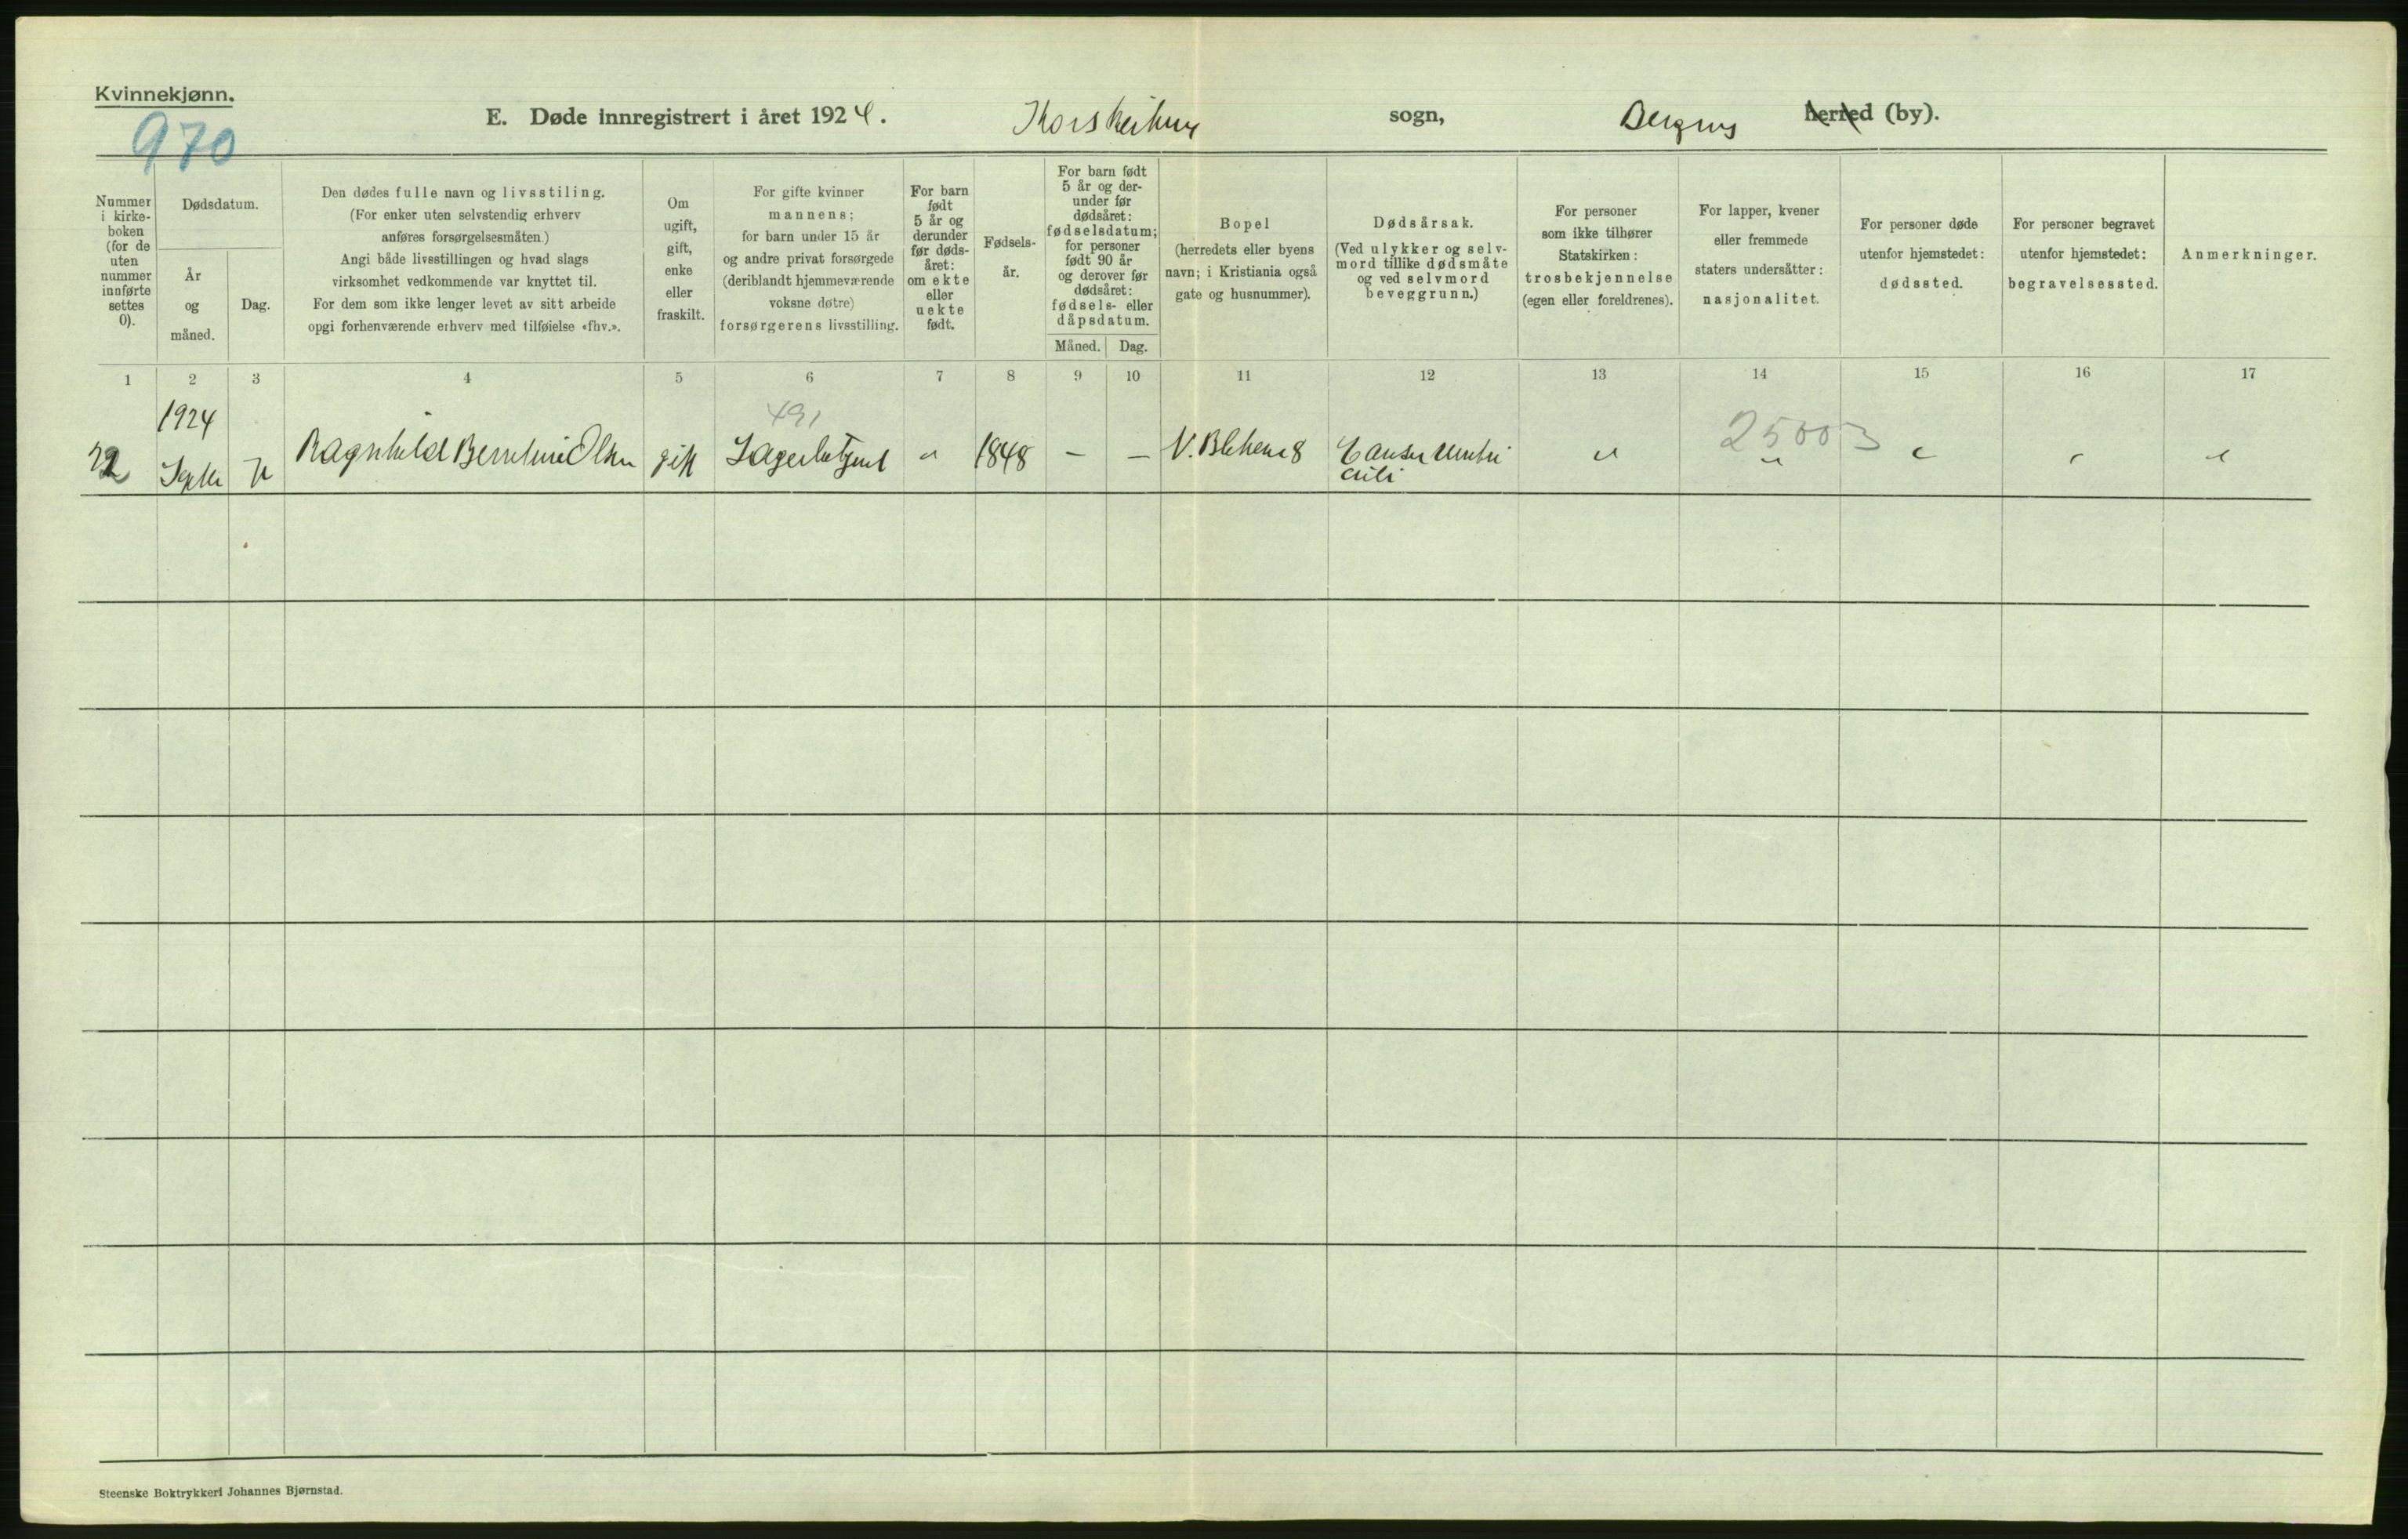 Kvinnekjønn.
970
E. Døde innregistrert i året 1924. Korskirken sogn, Bergens herred (by).
Nummer i kirke- boken (for de uten nummer innførte settes 0).
Dødsdatum.
År og måned.
Dag.
Den dødes fulle navn og livsstiling.
(For enker uten selvstendig erhverv
anføres forsørgelsesmåten.)
Angi både livsstillingen og hvad slags
virksomhet vedkommende var knyttet til.
For dem som ikke lenger levet av sitt arbeide
opgi forhenværende erhverv med tilføielse «fhv.».
Om
ugift,
gift,
enke
eller
fraskilt.
For gifte kvinner
mannens;
for barn under 15 år
og andre privat forsørgede
(deriblandt hjemmeværende
voksne døtre)
forsørgerens livsstilling.
For barn
født
5 år og
derunder
før døds-
året:
om ekte
eller
uekte
født.
Fødsels-
år.
For barn født
5 år og der-
under før
dødsåret:
fødselsdatum;
for personer
født 90 år
og derover før
dødsåret:
fødsels- eller
dåpsdatum.
Måned. Dag.
Bopel
(herredets eller byens
navn; i Kristiania også
gate og husnummer).
Dødsårsak.
(Ved ulykker og selv-
mord tillike dødsmåte
og ved selvmord
beveggrunn.)
For personer
som ikke tilhører
Statskirken:
trosbekjennelse
(egen eller foreldrenes).
For lapper, kvener
eller fremmede
staters undersåtter:
nasjonalitet.
For personer døde
utenfor hjemstedet:
dødssted.
For personer begravet
utenfor hjemstedet:
begravelsessted.
Anmerkninger.
1 2 3 4 5 6 7 8 9 10 11 12 13 14 15 16 17
1924 491 25003
22 Septbr 7 Ragnhild Olsen gift Lagerbetjent " 1848 – – 8 Cancer ventri
culi
Steenske Boktrykkeri Johannes Bjørnstad.